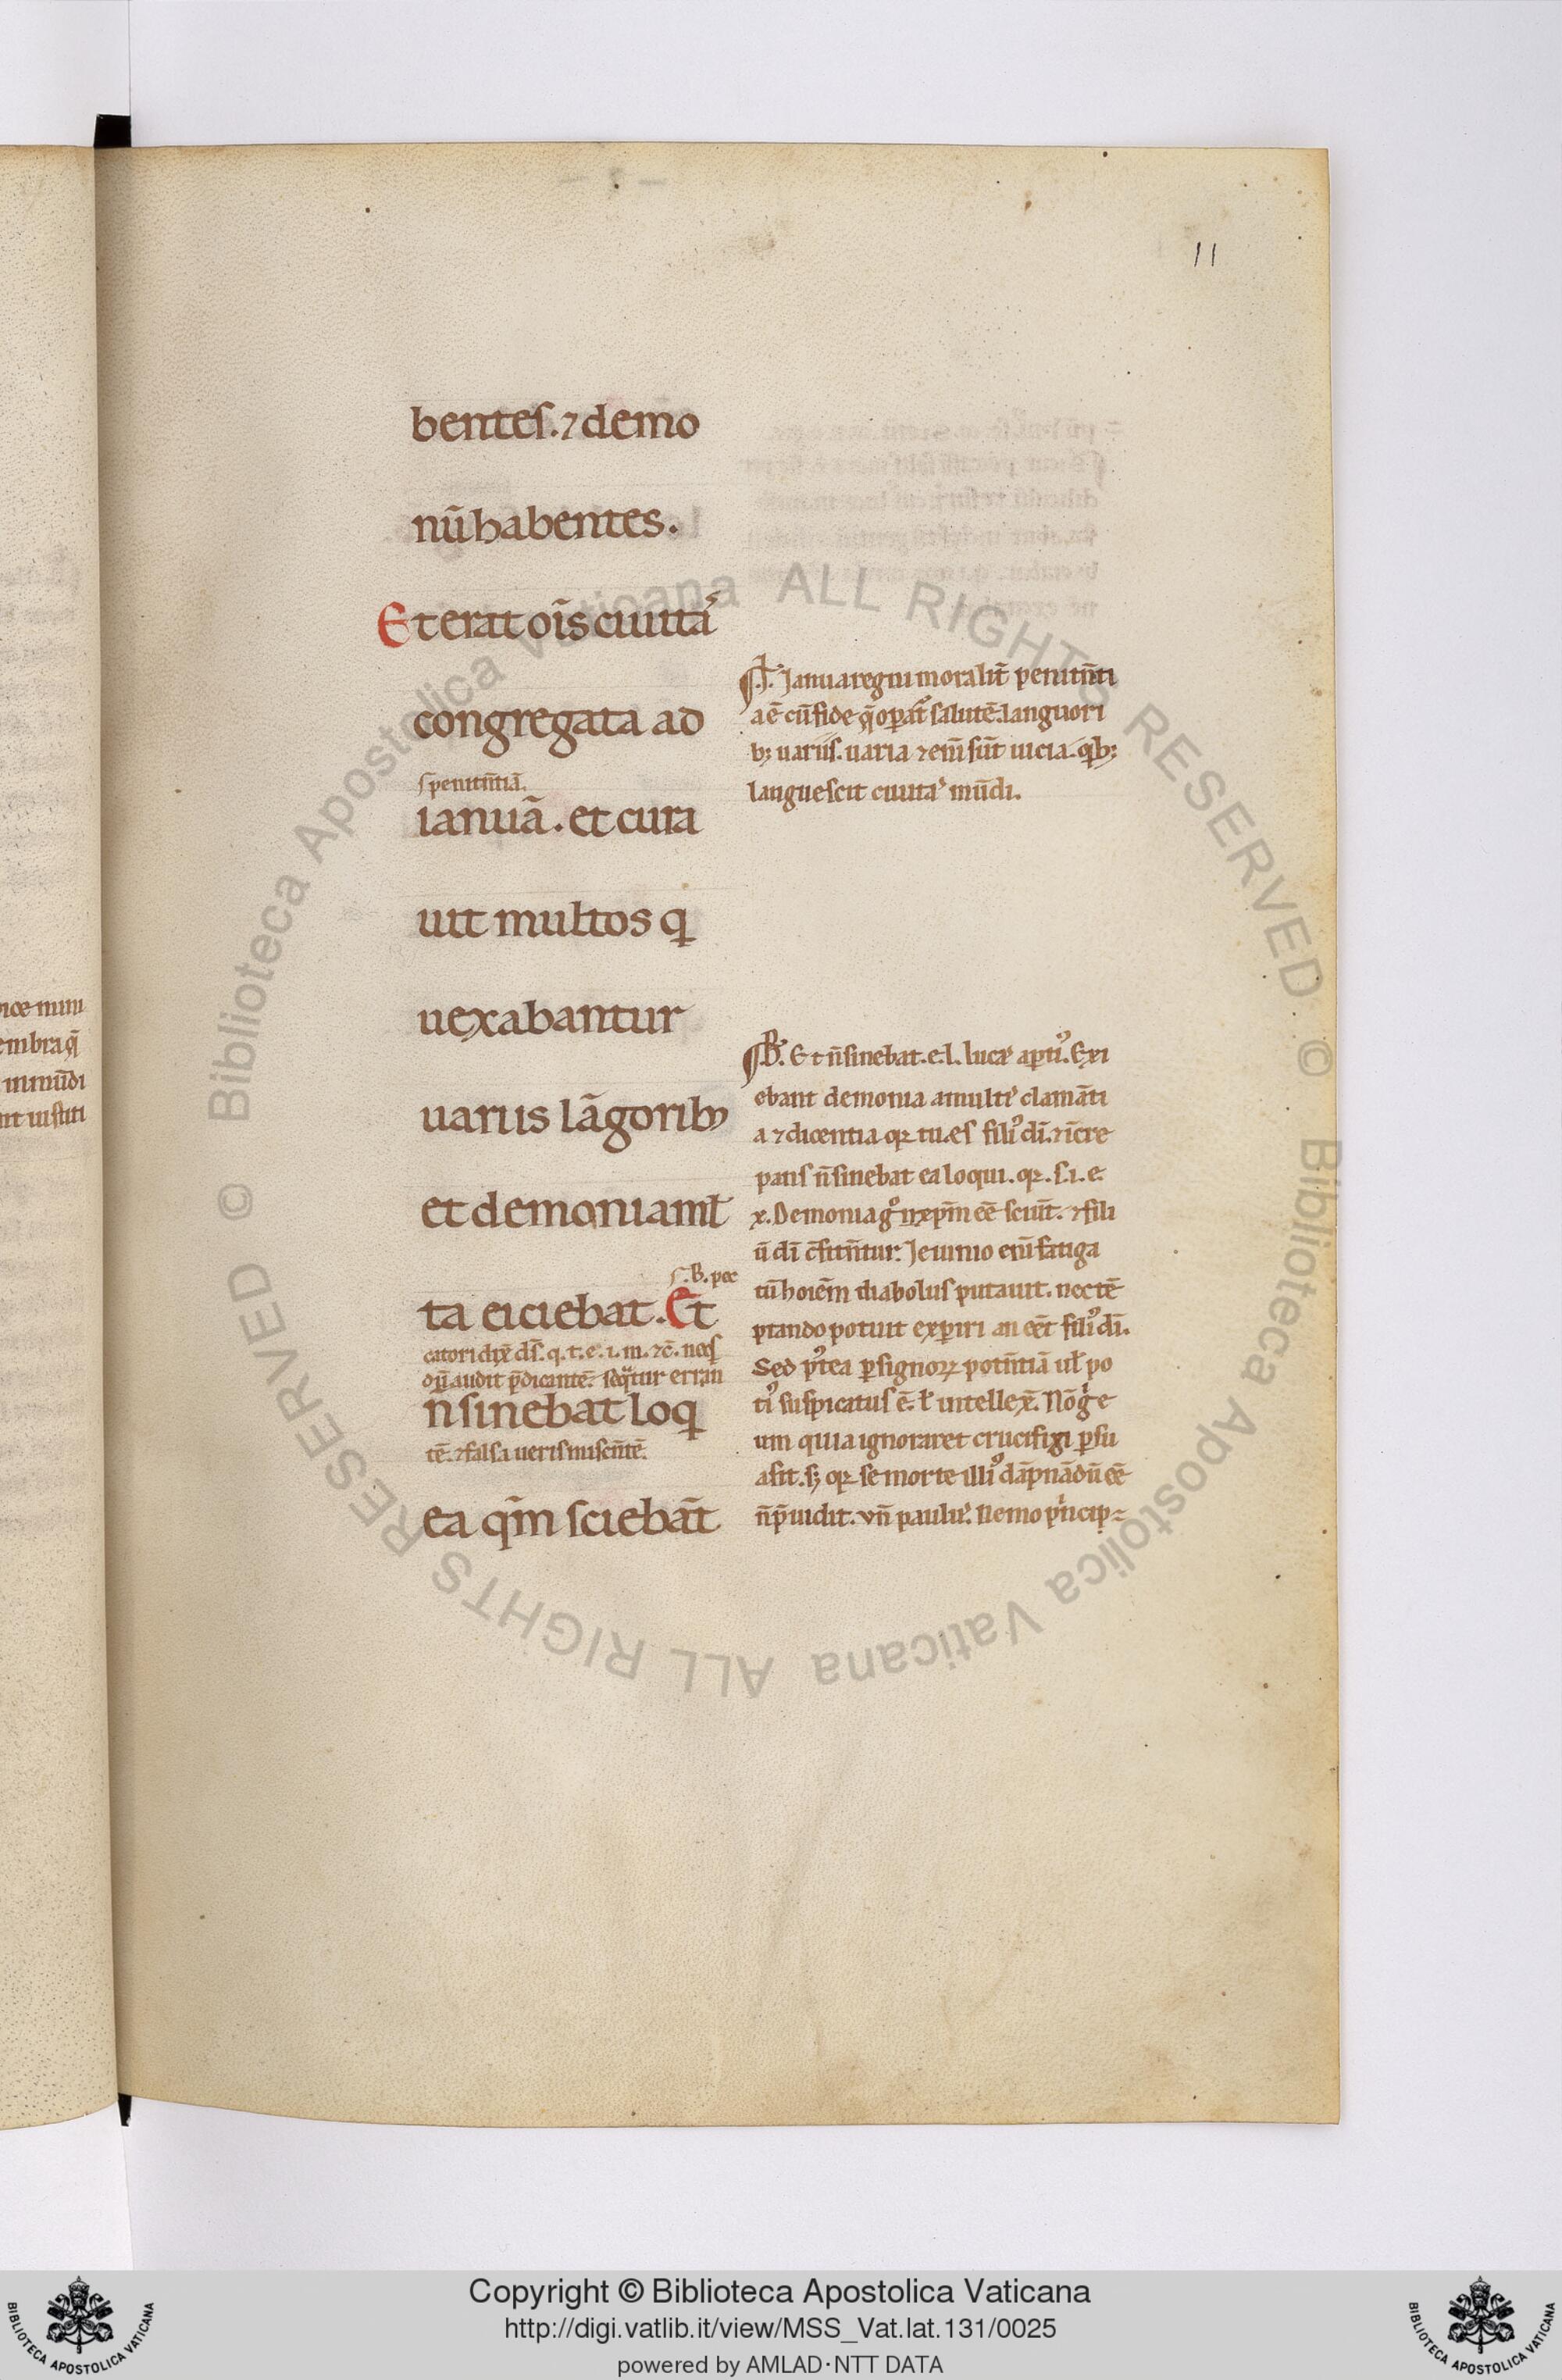 11
bentes. ⁊ demo
nū habentes.
Et erat oīs ciuita᷒
congregata ad
s. penitn̄tiā.
ianuā. et cura
uit multos q̇
uexabantur
uariis lāgoribꝫ
et demonia ml̄
s. B. pec
ta eiciebat. Et
catori dix̄ ds̄. q. t. e. i. m. ⁊c̄. neq̨
n̄ sinebat loq̇
tē. ⁊ falsa ueris miscn̄tē.
ea qm̄ sciebāt
Ianua regni moralit̄ penitn̄ti
a ē cū fide q̄ oꝑat᷒ salutē. languori
bꝫ uariis. uaria ⁊enī sūt uicia. qͥbꝫ
languescit ciuita᷒ mūdi.
B. Et n̄ sinebat. e. l. luca᷒ apti᷒. Exi
ebant demonia a multi᷒ clamāti
a ⁊ dicentia qꝛ tu es fili᷒ dī. ⁊ īcre
pans n̄ sinebat ea loqui. qꝛ. s. i. e.
x. Demonia gͦ xp̄m eē sciūt. ⁊ fili
ū dī c̄fitn̄tur. Ieiunio enī fatiga
tū hoiēm diabolus putauit. nec tē
ptando potuit exꝑiri an eēt fili᷒ dī.
Sed p᷒tea ꝑ signoꝝ potn̄tiā ul̄ po
ti᷒ suspicatus ē. l̄ intellex̄. Nō g̊ e
um quia ignoraret crucifigi ꝑsu
asit. sꝫ qꝛ se morte illi᷒ dāpnādū eē
n̄ p̄uidit. vn̄ paulu᷒. Nemo pͥncip=
Copyright © Biblioteca Apostolica Vaticana
http://digi.vatlib.it/view/MSS_Vat.lat.131/0025
powered by AMLAD·NTT DATA
BIBLIOTECA APOSTOLICA VATICANA
BIBLIOTECA APOSTOLICA VATICANA
© Biblioteca Apostolica Vaticana ALL RIGHTS RESERVED © Biblioteca Apostolica Vaticana ALL RIGHTS RESERVED